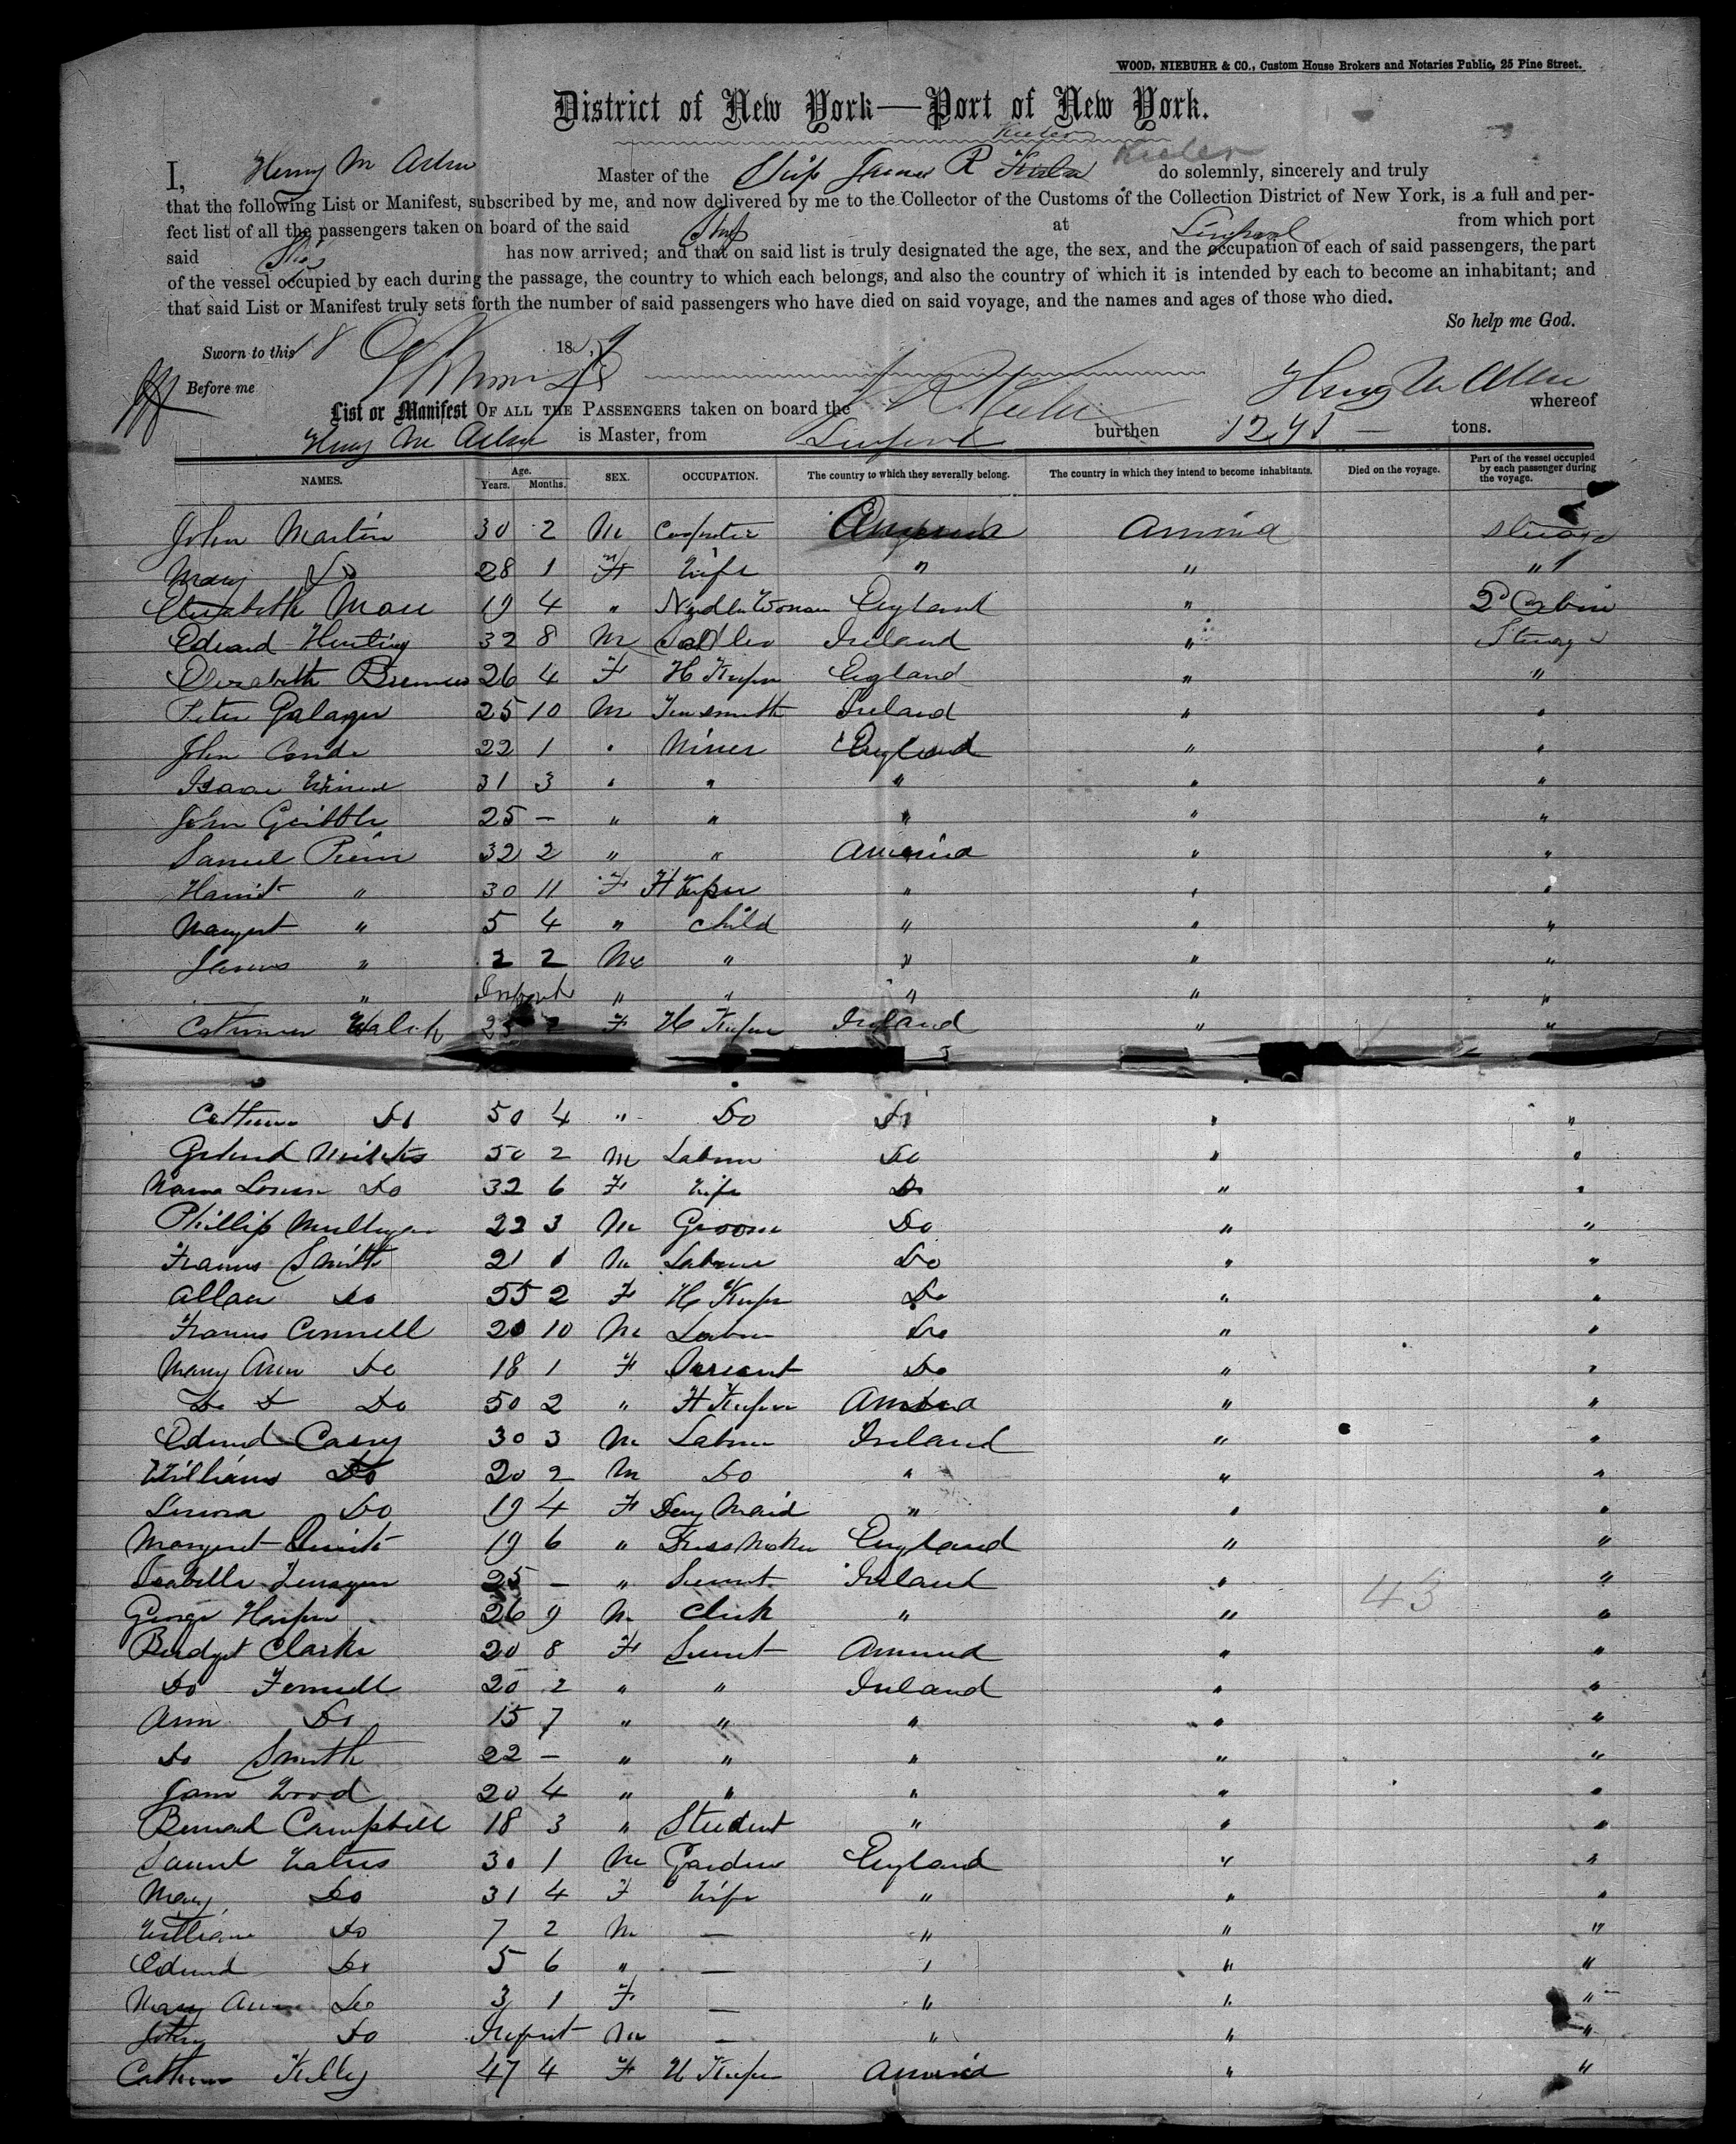 WOOD, NIEBUHR & CO., Custom House Brokers and Notaries Public, 25 Pine Street.
District of New York—Port of New York.
Keeler
I, Henry M Master of the Ship James R Keeler do solemnly, sincerely and truly
that the following List or Manifest, subscribed by me, and now delivered by me to the Collector of the Customs of the Collection District of New York, is a full and per-
fect list of all the passengers taken on board of the said Ship at Liverpool from which port
said Ship has now arrived; and that on said list is truly designated the age, the sex, and the occupation of each of said passengers, the part
of the vessel occupied by each during the passage, the country to which each belongs, and also the country of which it is intended by each to become an inhabitant; and
that said List or Manifest truly sets forth the number of said passengers who have died on said voyage, and the names and ages of those who died.
So help me God.
Sworn to this 18 185
Before me
List or Manifest OF ALL THE PASSENGERS taken on board the J R Keeler whereof
Henry is Master, from Liverpool burthen 1241 — tons.
NAMES. Age. Years. Months. SEX. OCCUPATION. The country to which they severally belong. The country in which they intend to become inhabitants. Died on the voyage. Part of the vessel occupied by each passenger during the voyage.
John Martin 30 2 M Carpenter America America Steerage
Mary Do 28 1 F Wife " " "
Elizabeth 19 4 " Needle Woman England " 2d Cabin
Edward 32 8 M Saddler Ireland " Steerage
Elizabeth 26 4 F H Keeper England " "
Peter Galager 25 10 M Tinsmith Ireland " "
John 22 1 " Miner England " "
Isaac 31 3 " " " " "
John Gribble 25 — " " " " "
Samuel 32 2 " " America " "
Harriet " 30 11 F H Keeper " " "
Margret " 5 4 " Child " " "
James " 2 2 M " " " "
" Infant " " " " "
Walsh 25 2 F H Keeper Ireland " "
Do 50 4 " Do Do " "
50 2 M Labourer Do " "
Do 32 6 F Wife Do " "
Phillip Mulligan 22 3 M Groom Do " "
Francis Smith 21 1 M Labourer Do " "
Do 55 2 F H Keeper Do " "
Francis Connell 20 10 M Labourer Do " "
Mary Ann Do 18 1 F Servant Do " "
Do Do Do 50 2 " H Keeper America " "
Edmund Casey 30 3 M Labourer Ireland " "
William Do 20 2 M Do " " "
Do 19 4 F Dairy Maid " " "
Margret 19 6 " Dress Maker England " "
Isabella 25 — " Servant Ireland " "
43
George 26 9 M Clerk " " "
Bridget Clarke 20 8 F Servant America " "
Do 20 2 " " Ireland " "
Ann Do 15 7 " " " " "
Do Smith 22 — " " " " "
Wood 20 4 " " " " "
Bernard Campbell 18 3 " Student " " "
Samuel 30 1 M Gardener England " "
Mary Do 31 4 F Wife " " "
William Do 7 2 M — " " "
Edmund Do 5 6 " — " " "
Mary Ann Do 3 1 F — " " "
John Do Infant M — " " "
Catherine Kelley 47 4 F H Keeper America " "